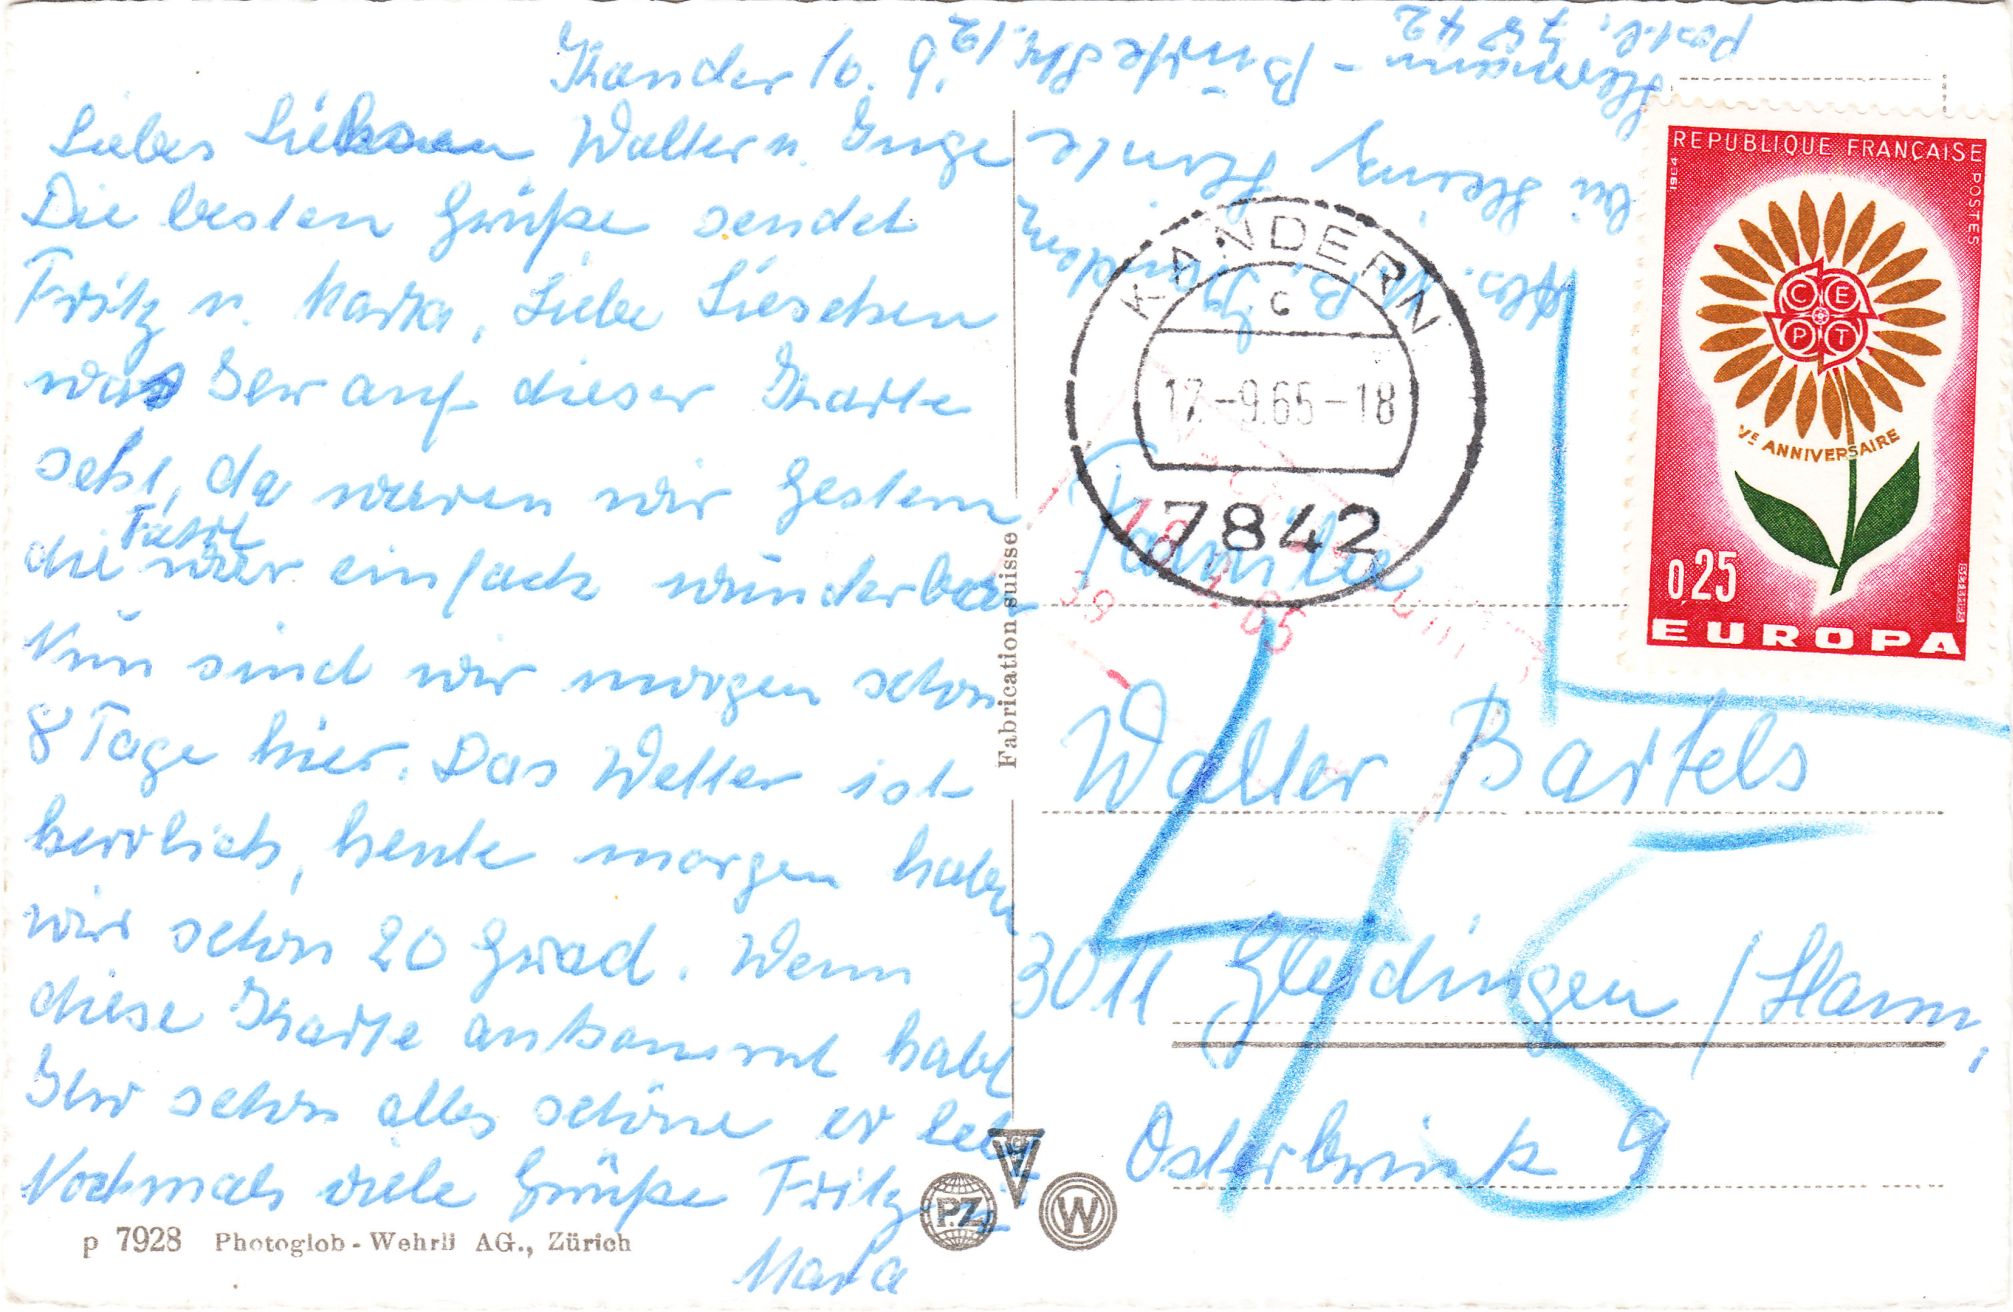 Kander 16. 9.
Liebes Lieschen Walter u. Inge
Die besten Grüße sendet
Fritz u. Marta, Liebe Lieschen
was Ihr auf dieser Karte
seht, da waren wir gestern
die Fahrt war einfach wunderbar
Nun sind wir morgen schon
8 Tage hier. Das Wetter ist
herrlich, heute morgen haben
wir schon 20 Grad. Wenn
diese Karte ankommt habt
Ihr schon alles schöne er lebt
Nochmals viele Grüße Fritz
Marta
p 7928 Photoglob-Wehrli AG., Zürich
Fabrication suisse
P.Z
W
Abs. M. B.
bei
Hermann-
Str. 12
Postl. 7842
KANDERN
c
17.-9.65-18
7842
REPUBLIQUE FRANÇAISE
POSTES
1964
CEPT
Ve ANNIVERSAIRE
0,25
EUROPA
Familie
Walter Bartels
3011 Gleidingen / Hann,
Osterbrink 9
45